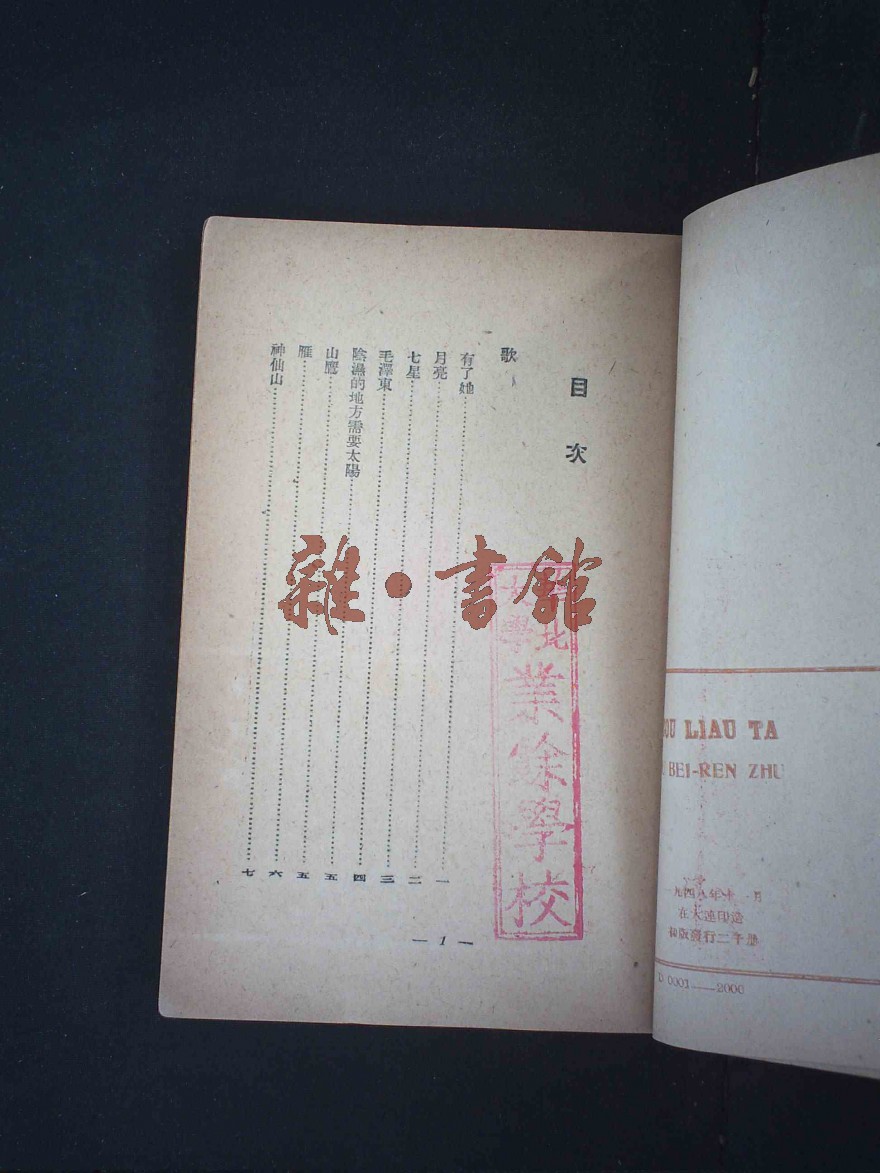 目次
歌
有了她……一
月亮……二
七星……三
毛澤東……四
陰濕的地方需要太陽……五
山鷹……五
雁……六
神仙山……七
— 1 —
北
大學
業餘學校
雜·書館
OU LIAU TA
BEI-REN ZHU
一九四八年十一月
在大連印造
初版發行二千册
D 0001——2000